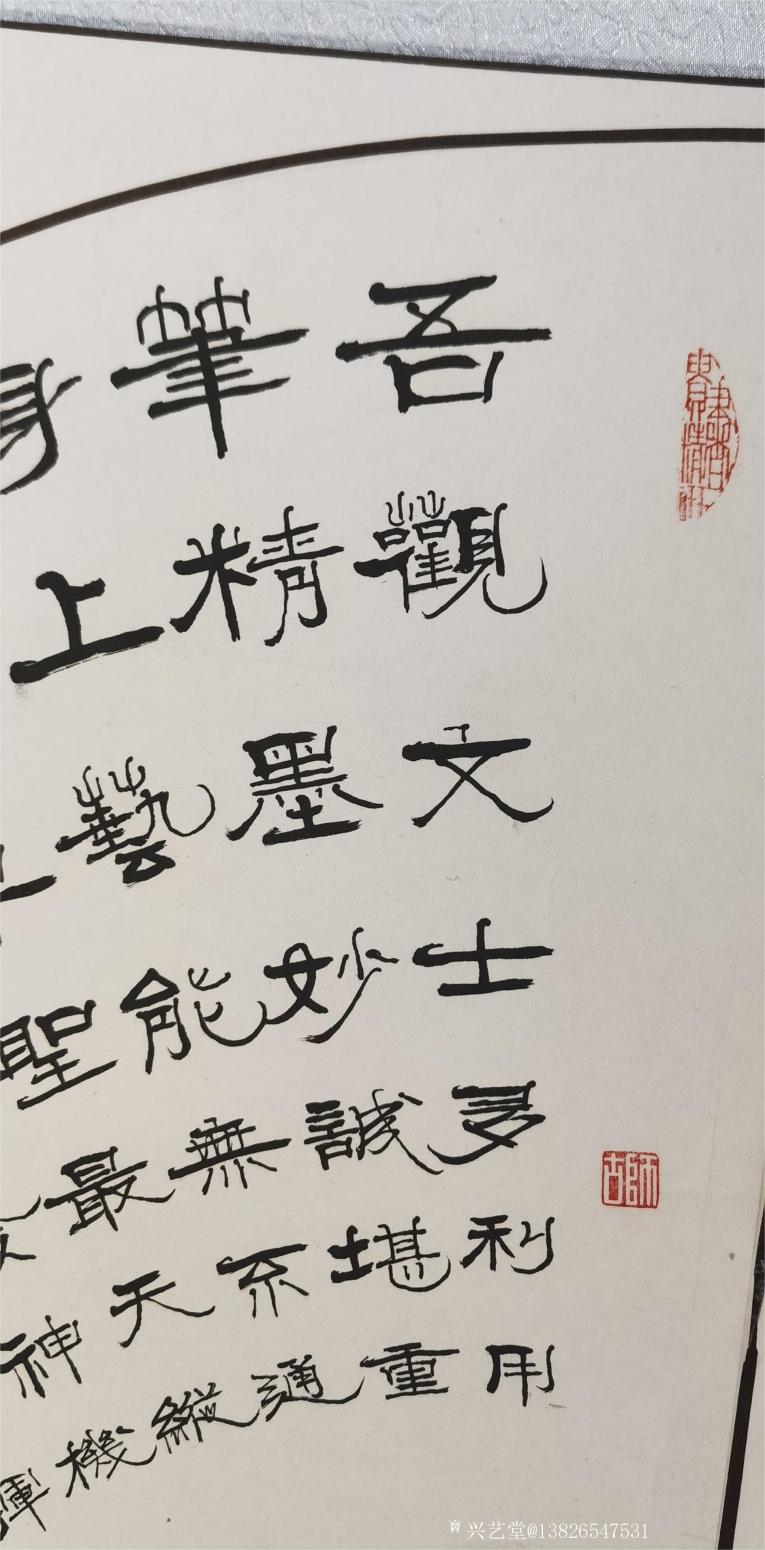 吾觀文士多利用
筆精墨妙誠堪重
身上藝能無不通
聖最天縱
神機
揮
師古
兴艺堂@13826547531